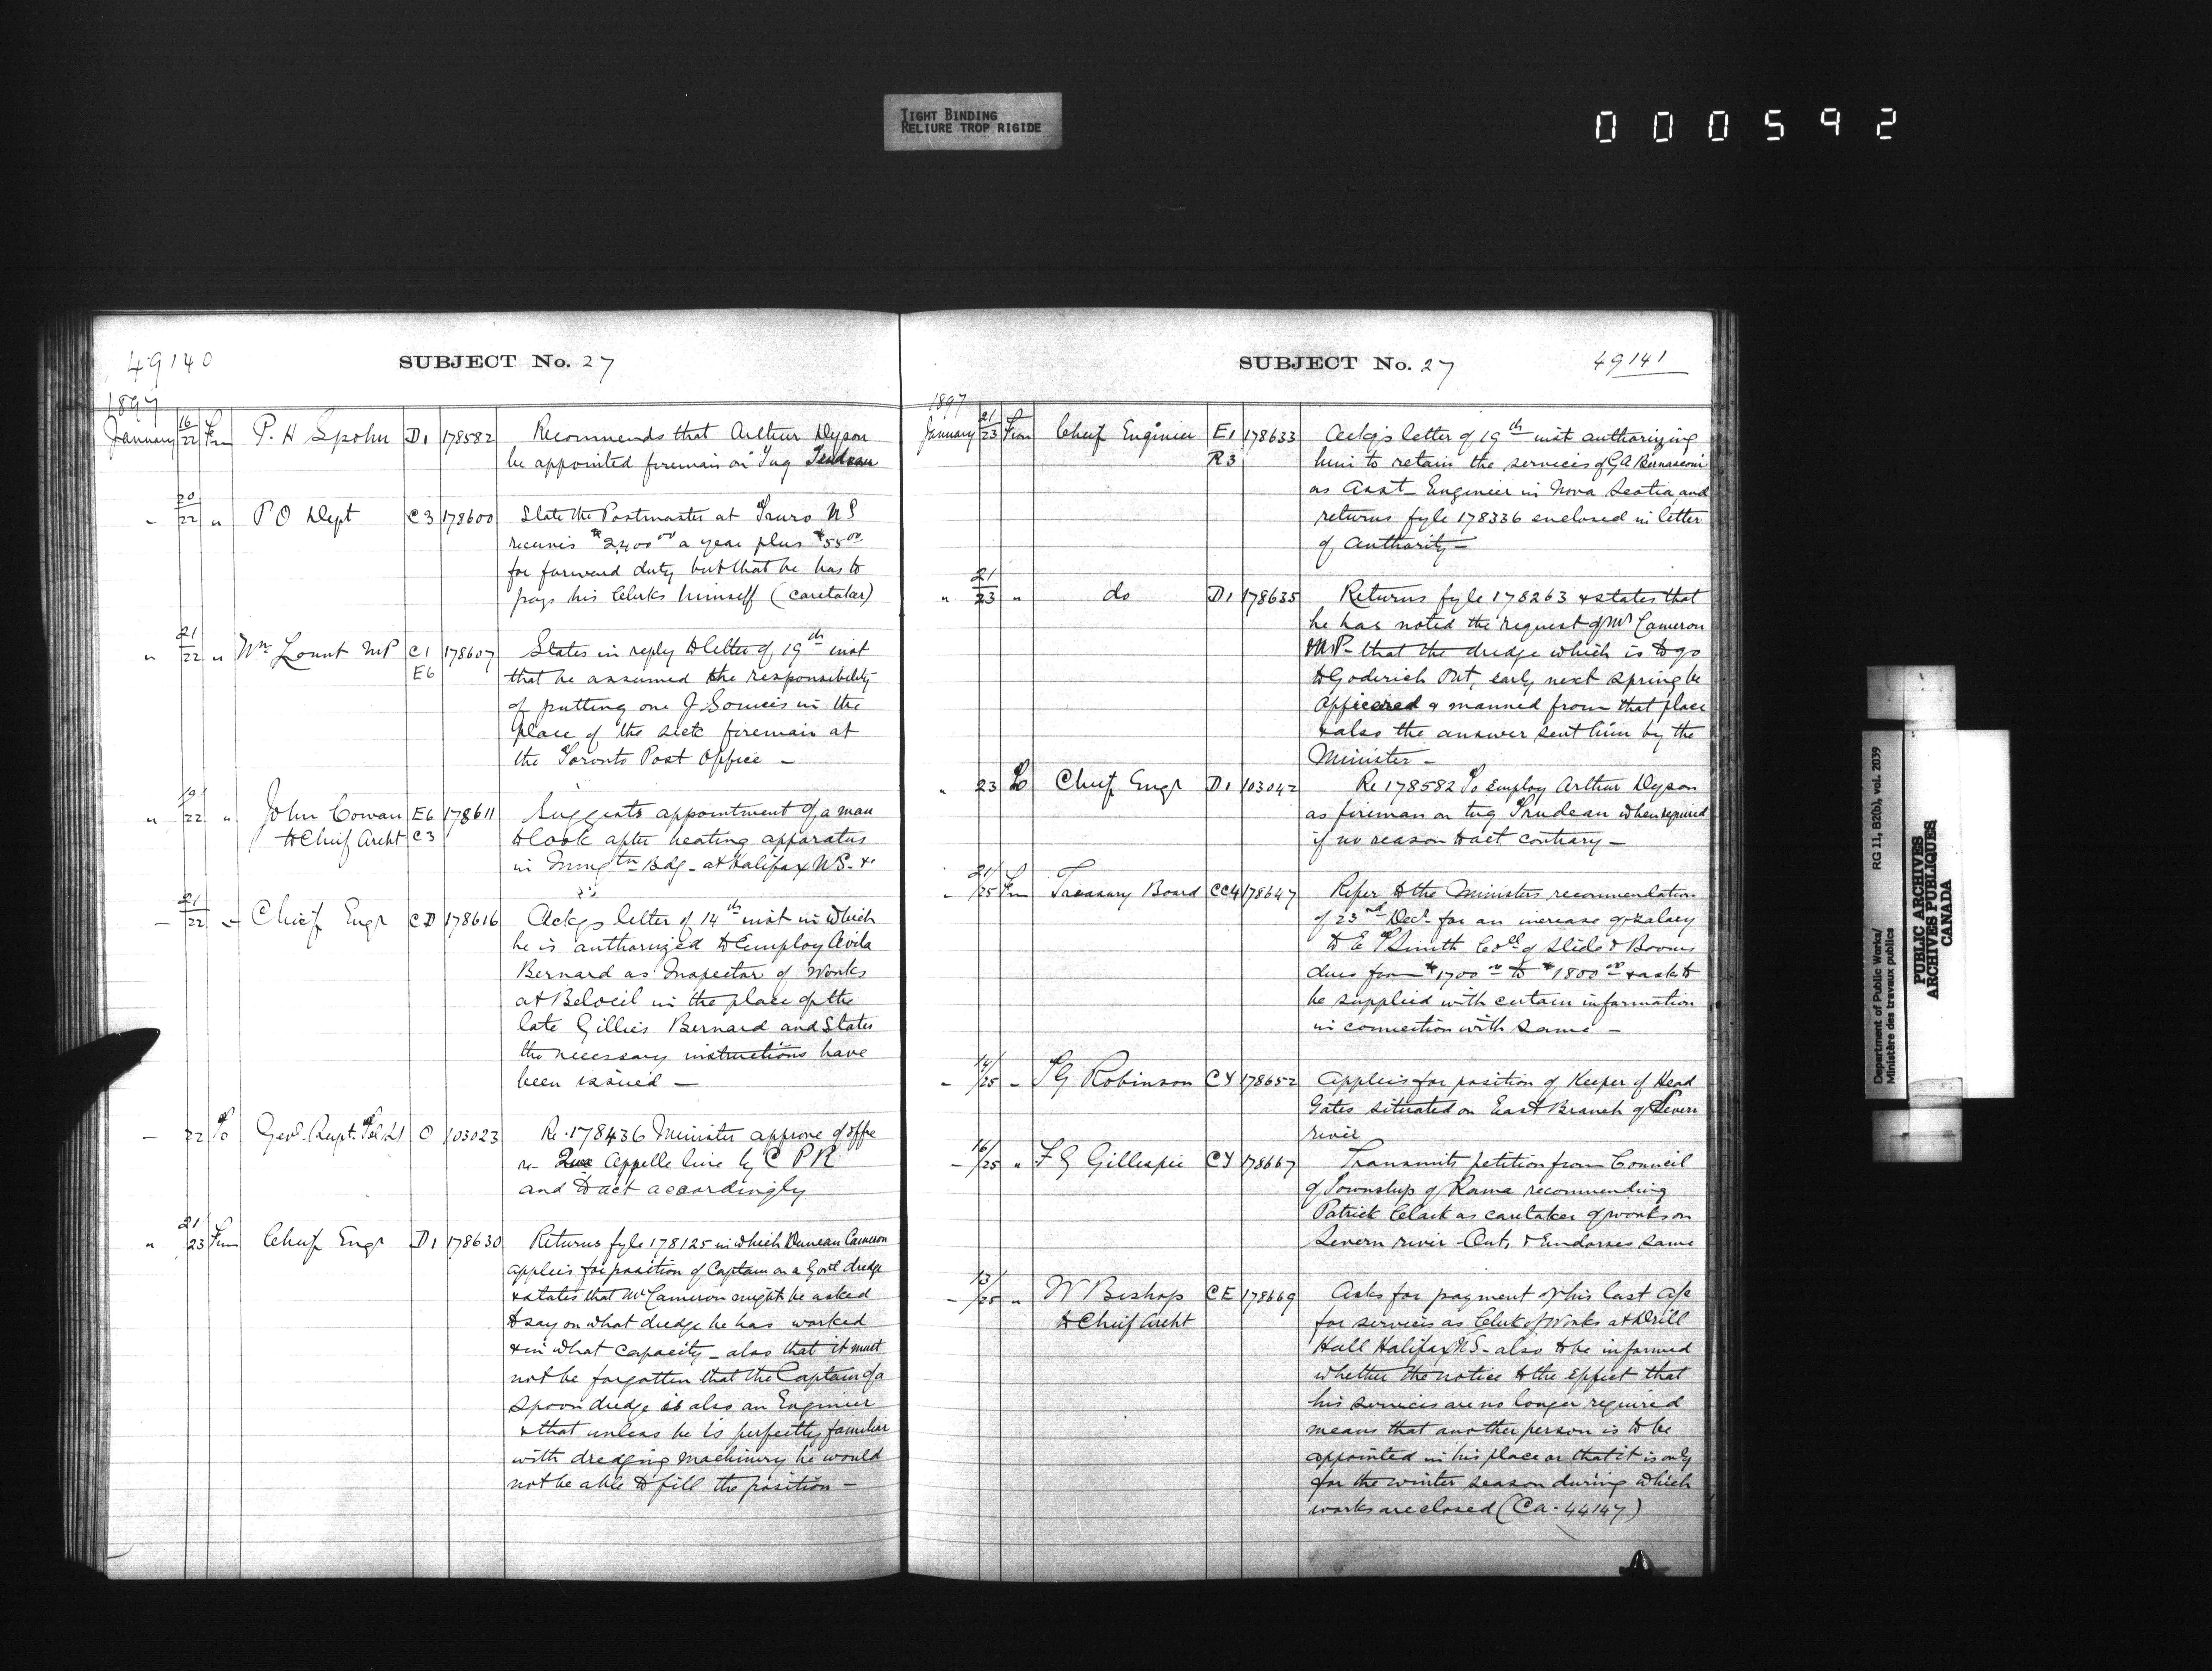 TIGHT BINDING
RELIURE TROP RIGIDE
000592
49140
SUBJECT No. 27
1897
January 16/22 Frm P. H Spohn D1 178582 Recommends that Arthur Dyson
be appointed foreman on Tug Trudeau
" 20/22 " P O Dept C3 178600 State the Postmaster at Truro NS
receives $2,400 00 a year plus $55 00
for forward duty but that he has to
pays his Clerks himself (caretaker)
" 21/22 " Wm Lount MP C1 178607 States in reply to letter of 19th inst
E6 that he assumed the responsibility
of putting one J Somers in the
place of the sick fireman at
the Toronto Post Office –
" 19/22 " John Cowan E6 178611 Suggests appointment of a man
to Chief Archt C3 to look after heating apparatus
in Immgtn Bdg – at Halifax NS –
– 21/22 – Chief Engr CD 178616 Ackgs letter of 14th inst in which
he is authorized to Employ Avila
Bernard as Inspector of Works
at Beloeil in the place of the
late Gillies Bernard and States
the necessary instructions have
been issued –
– 22 To Genl. Supt. Tel O 103023 Re. 178436 Minister approve of offre
re – Appelle line by C P R
and to act accordingly
" 21/23 Frm Chief Engr D1 178630 Returns fyle 178125 in which Duncan Cameron
applies for position of Captain on a Govt dredge
& states that Mr Cameron might be asked
to say on what dredge he has worked
& in what capacity – also that it must
not be forgotten that the Captain of a
spoon dredge is also an Engineer
& that unless he is perfectly familiar
with dredging machinery he would
not be able to fill the position –
SUBJECT No. 27
49141
1897
January 21/23 From Chief Engineer E1 178633 Ackgs letter of 19th inst authorizing
R3 him to retain the services of G A Bernasconi
as Asst Engineer in Nova Scotia and
returns fyle 178336 enclosed in letter
of authority –
" 21/23 " do D1 178635 Returns fyle 178263 & states that
he has noted the request of Mr Cameron
MP – that the dredge which is to go
to Goderich Ont, early next spring be
officered & manned from that place
& also the answer sent him by the
Minister –
" 23 To Chief Engr D1 103042 Re 178582 To employ Arthur Dyson
as fireman on tug Trudeau when required
if no reason to act contrary –
– 21/25 Frm Treasury Board CC4 178647 Refer to the Ministers recommendation
of 23rd Decr for an increase of salary
to E T Smith Collr of Slide & Booms
dues from $1700 00 to $1800 00 & ask to
be supplied with certain information
in connection with same –
– 14/25 – T G Robinson CY 178652 Applies for position of Keeper of Head
Gates situated on East Branch of Severn
river
– 16/25 " F G Gillespie CY 178667 Transmits petition from Council
of Township of Rama recommending
Patrick Clark as caretaker of works on
Severn river – Ont, & Endorses same
– 13/25 " W Bishop CE 178669 Asks for payment of his last a/c
to Chief Archt for services as Clerk of Works at Drill
Hall Halifax NS – also to be informed
whether the notice to the effect that
his services are no longer required
means that another person is to be
appointed in his place or that it is only
for the winter season during which
works are closed (Ca. 44147)
Department of Public Works/
Ministère des travaux publics
RG 11, B2(b), vol. 2039
PUBLIC ARCHIVES
ARCHIVES PUBLIQUES
CANADA